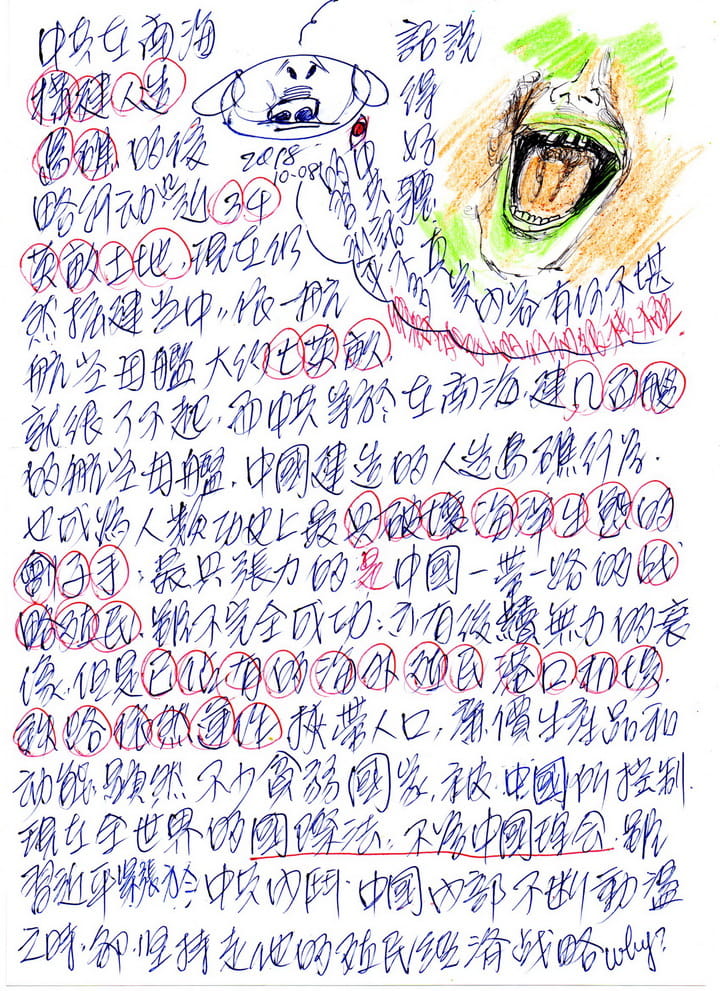 中共在南海
搭建人造
島礁的侵
略行动
34
英畝土地,現在仍
然搭建当中,依一航
航空母艦大約七英畝,
就很了不起,而中共等於在南海,建几百艘
的航空母艦,中國建造的人造島礁行為,
也成為人類历史上最具破壞海洋生態的
劊子手;最具張力的是中國一帶一路的战
略殖民,虽不完全成功;亦有後續無力的衰
像,但是已佔有的海外殖民港口机場,
鉄路依然運作,挾帶人口,廉價生產品和
动能,顯然不少貧弱國家,被中國所控制.
現在全世界的國際法,不為中國理会,虽
習近平緊張於中共內鬥,中國內部不断動溫
之時,卻坚持走他的殖民經濟战略why?
2018
10-081
話說
得好聽
真实內容有何不堪